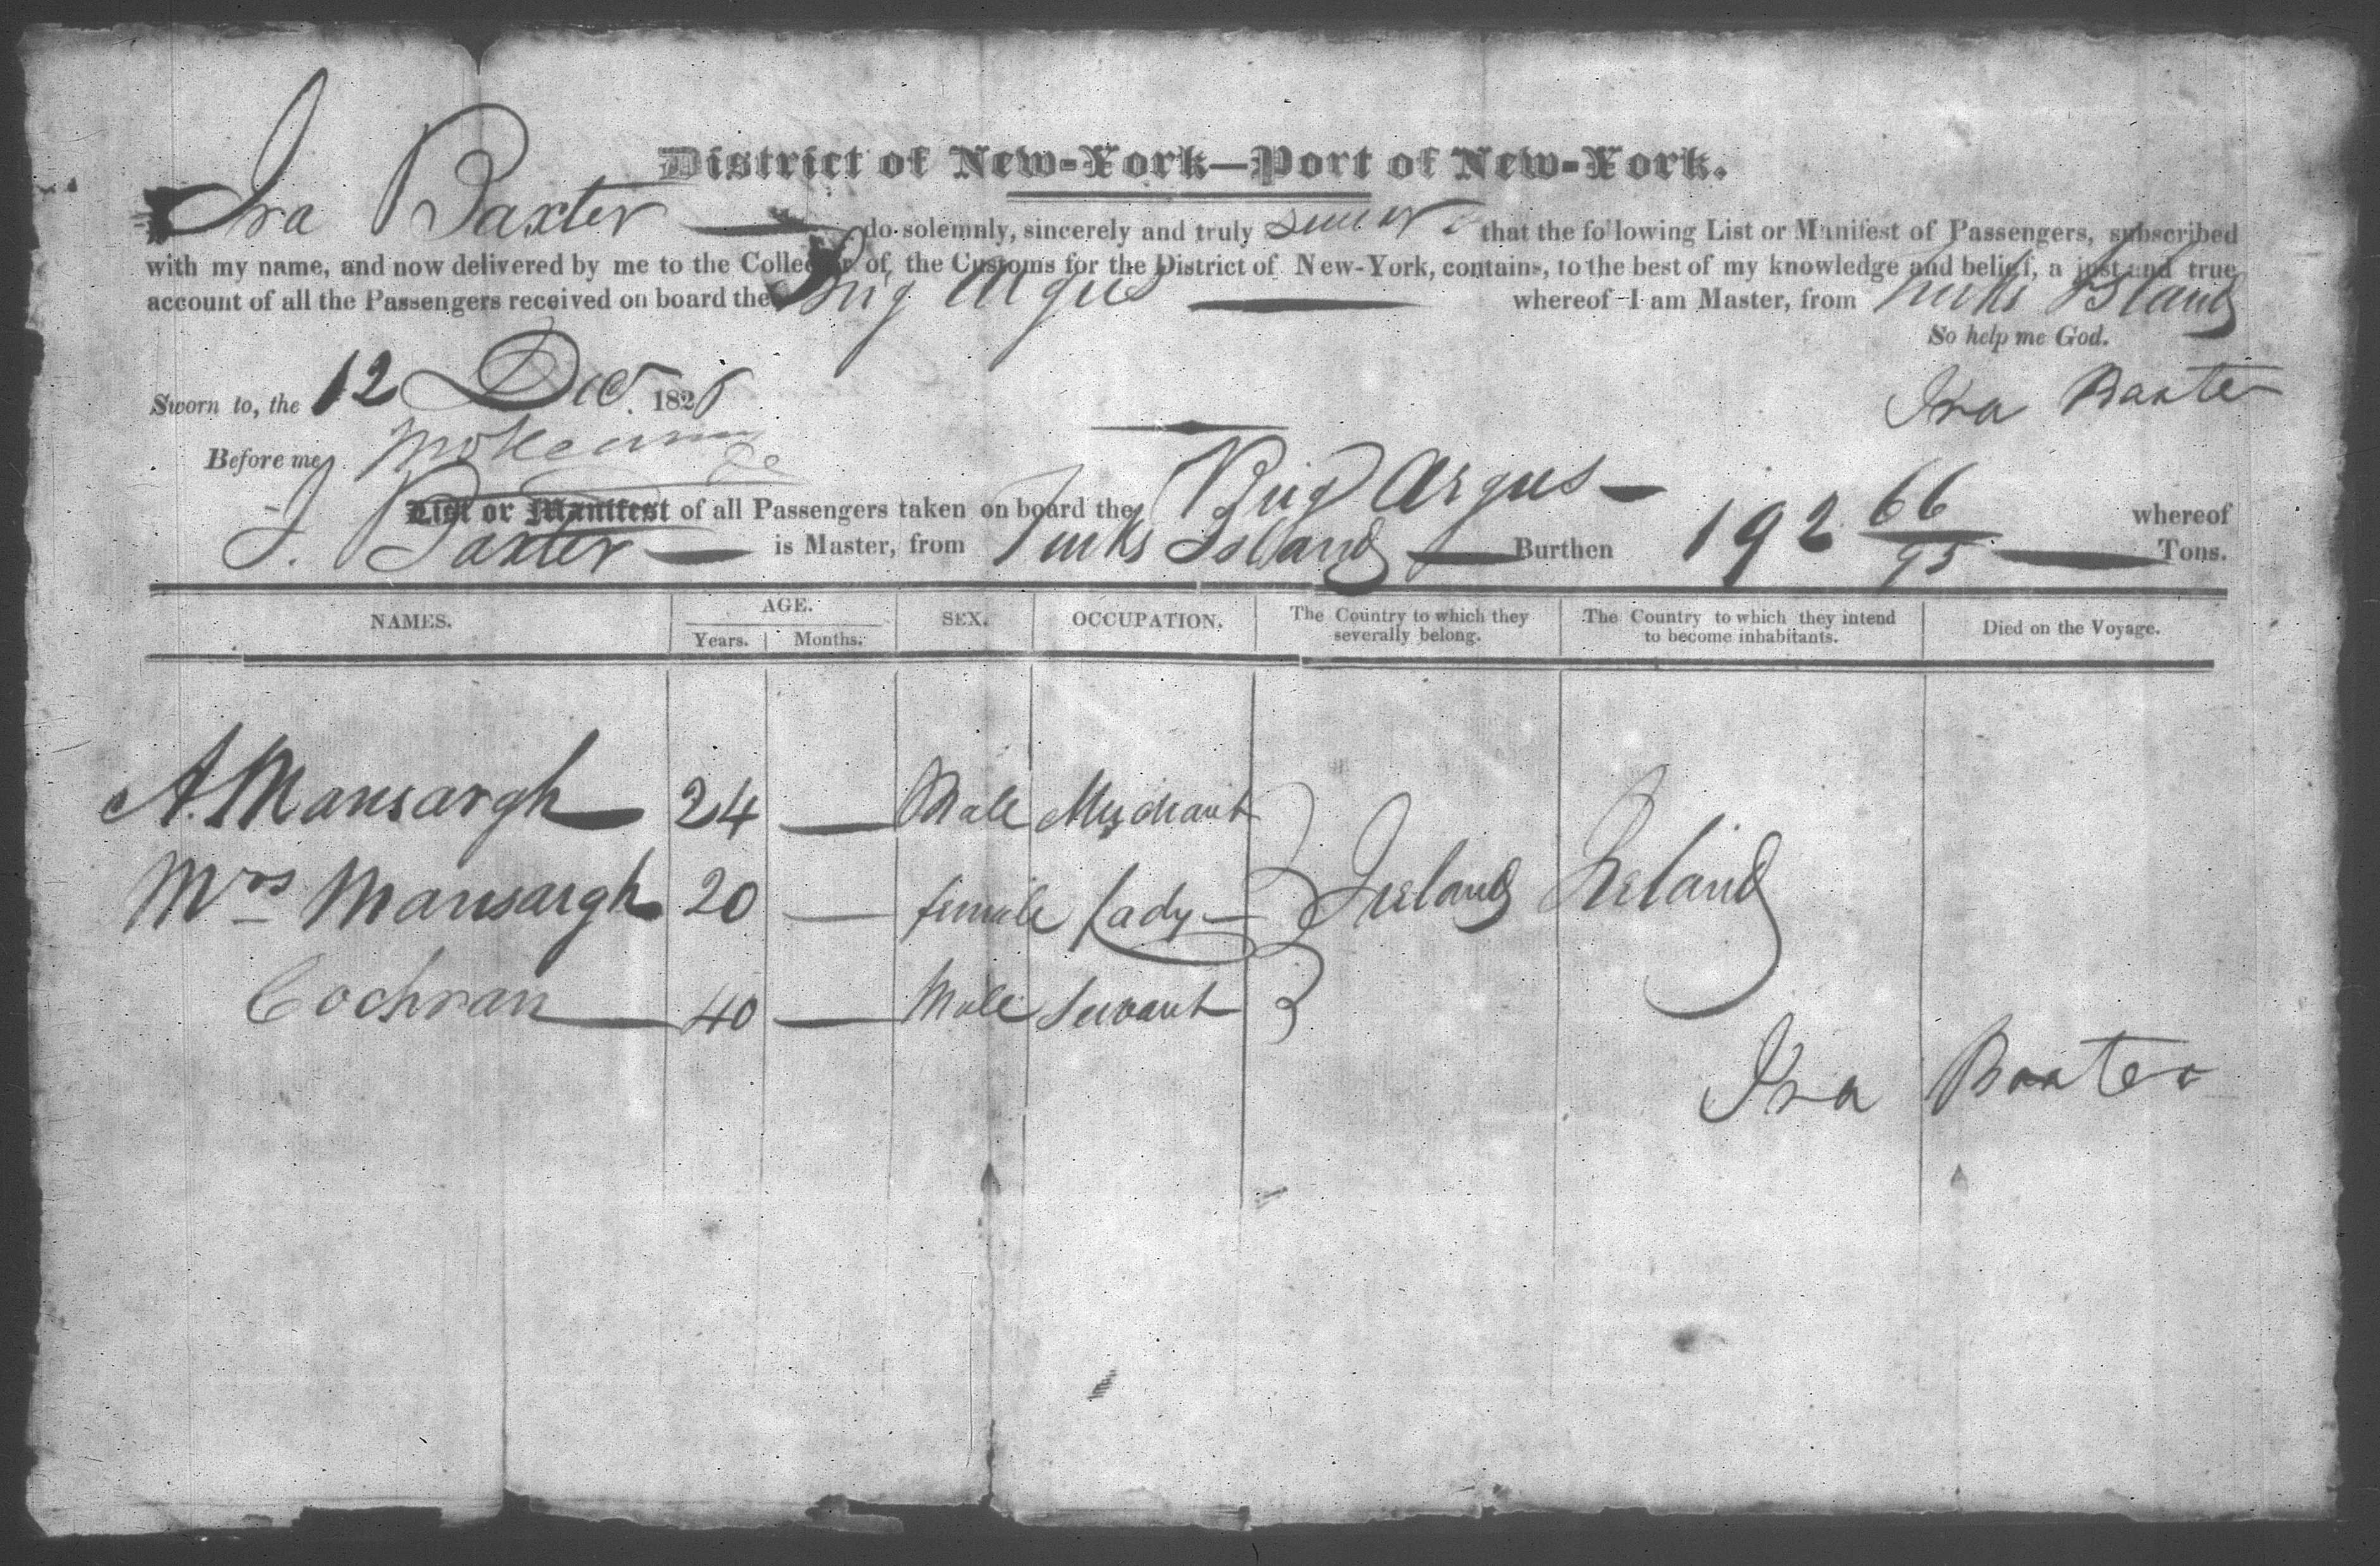 District of New-York—Port of New-York.
I Ira Baxter do solemnly, sincerely and truly swear that the following List or Manifest of Passengers, subscribed
with my name, and now delivered by me to the Collector of the Customs for the District of New-York, contains, to the best of my knowledge and belief, a just and true
account of all the Passengers received on board the Brig Argus whereof I am Master, from Turks Island
So help me God.
Sworn to, the 12 Decr. 182
Ira Baxter
Before me,
List or Manifest of all Passengers taken on board the Brig Argus — whereof
I. Baxter — is Master, from Turks Island — Burthen 192 66/95 — Tons.
NAMES. AGE. SEX. OCCUPATION. The Country to which they severally belong. The Country to which they intend to become inhabitants. Died on the Voyage.
Years. Months.
A. Mansargh 24 — Male Merchant
Mrs Mansargh 20 — female Lady — Ireland Ireland
Cochran 40 — Male Servant
Ira Baxter